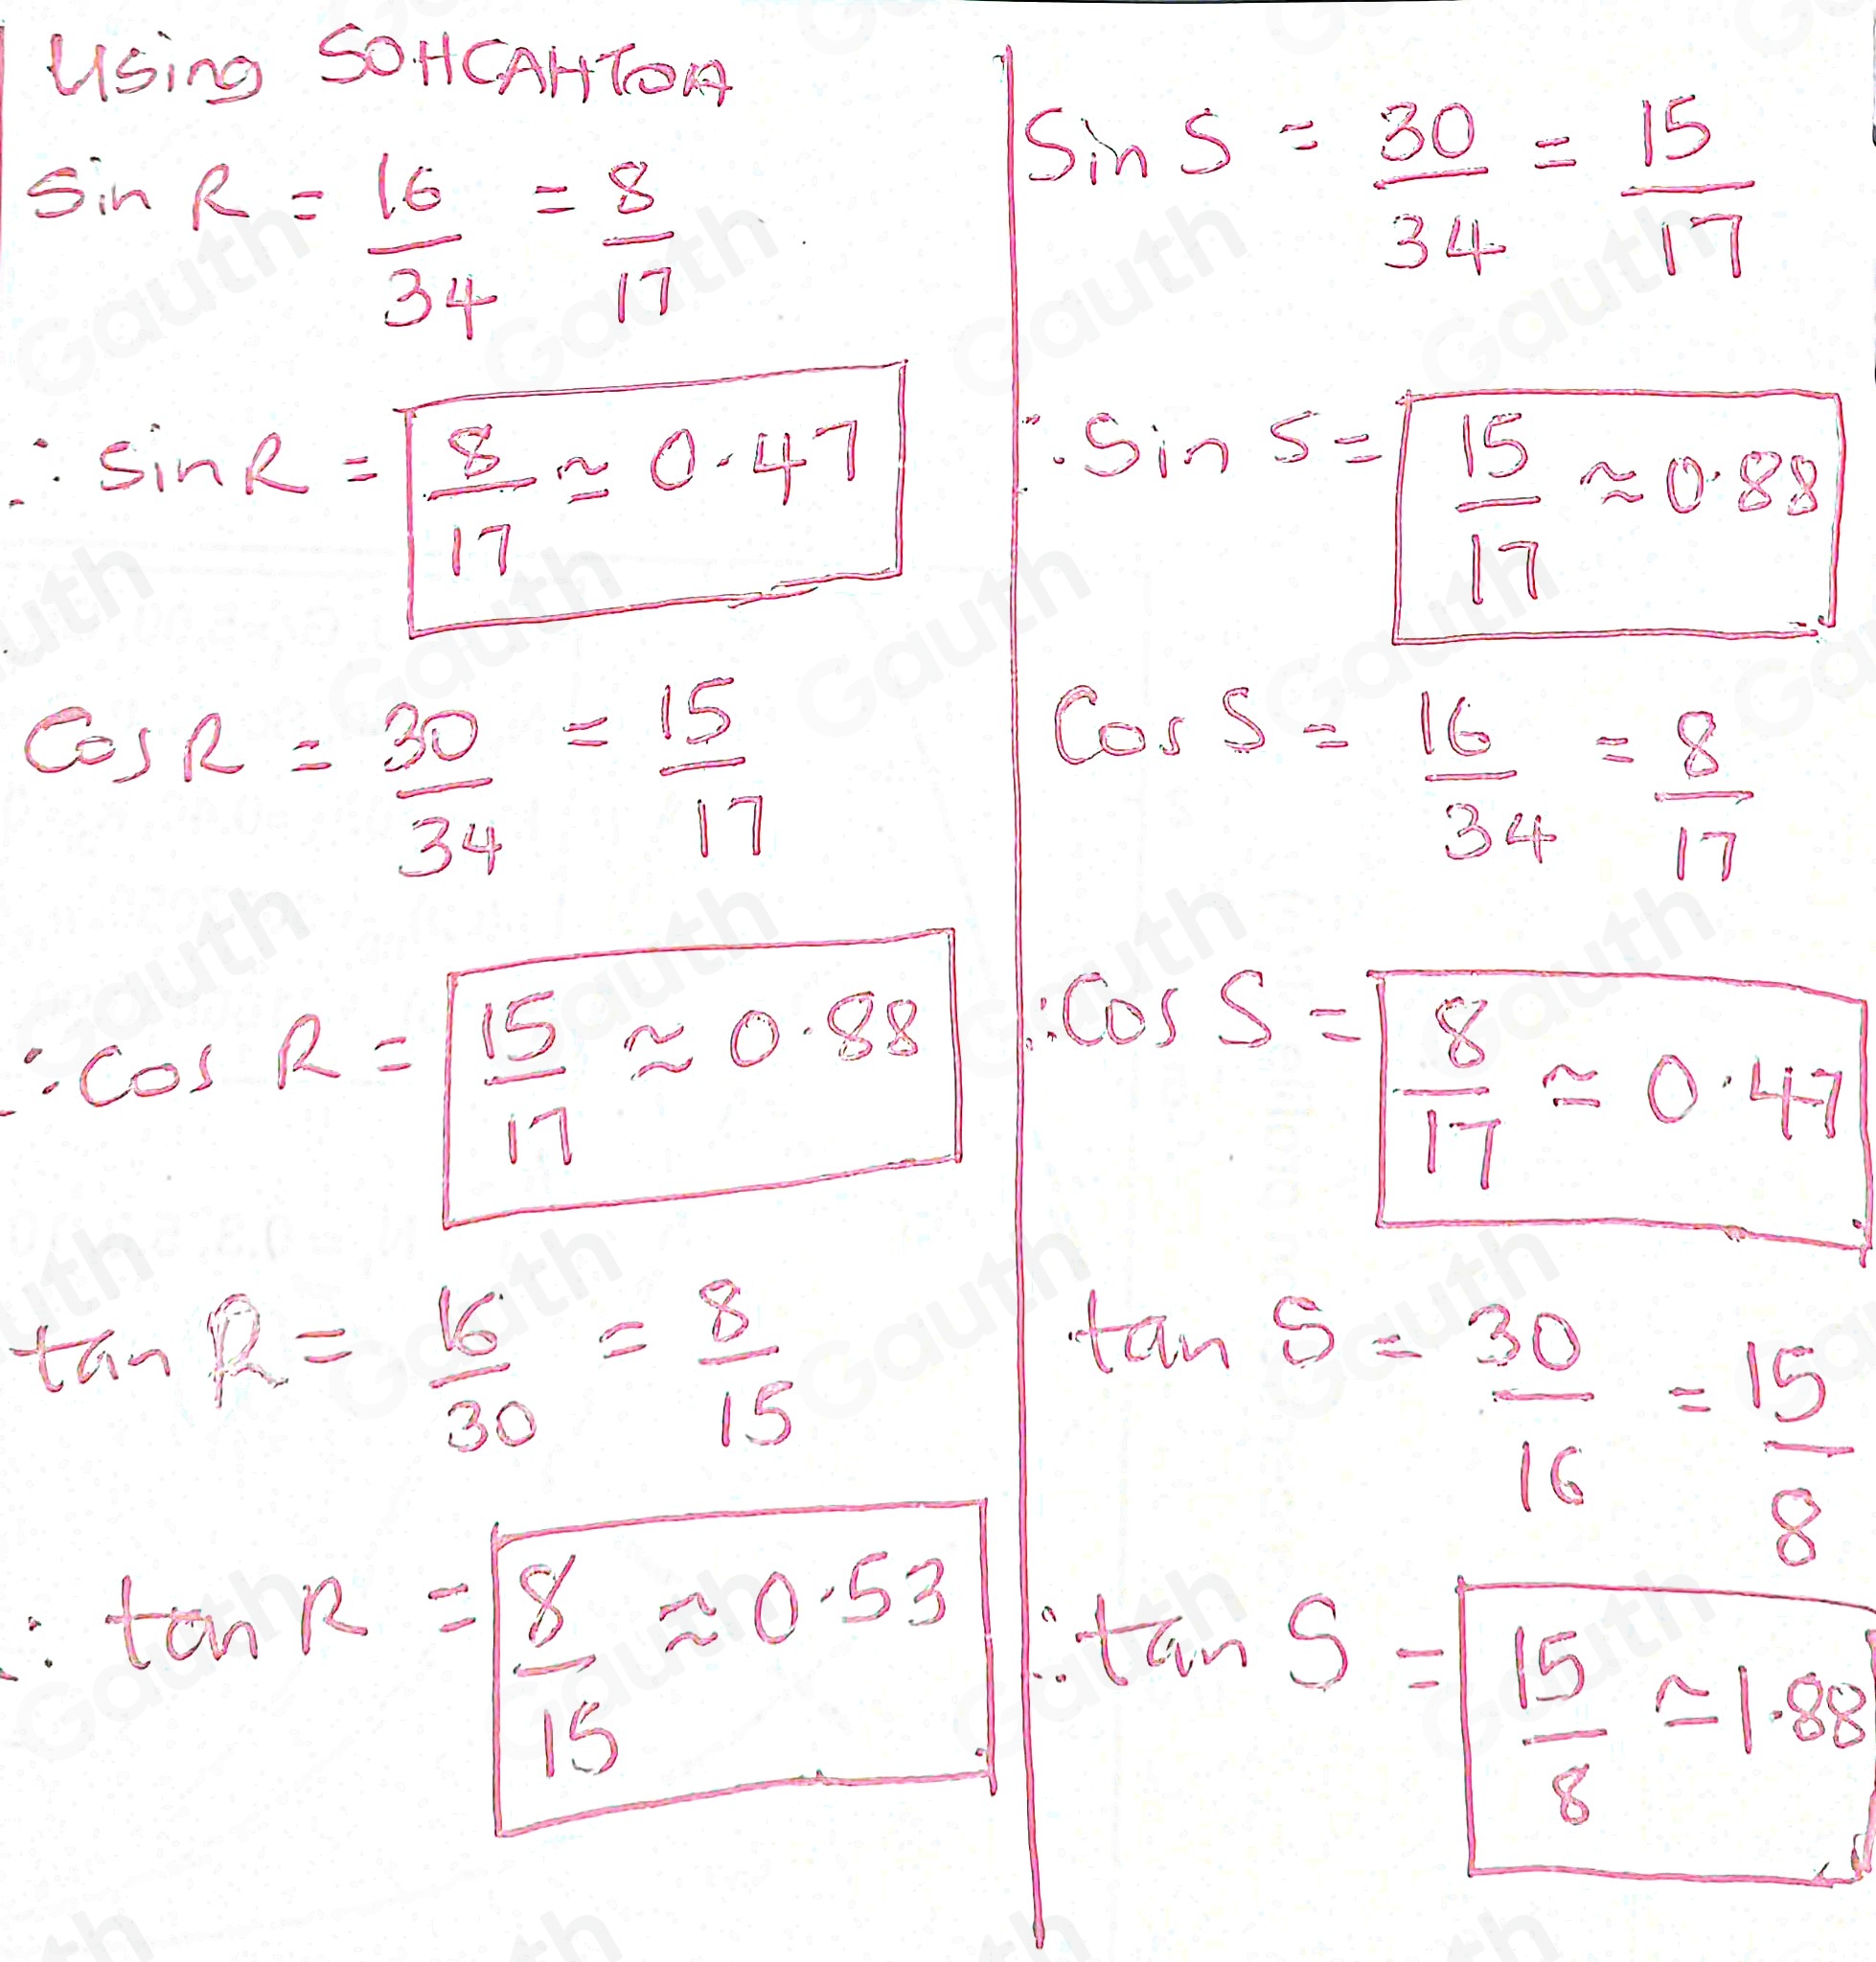 Using SOHCAHTOA
Sin R = 16/34 = 8/17
∴ Sin R = 8/17 ≃ 0.47
Cos R = 30/34 = 15/17
∴ Cos R = 15/17 ≈ 0.88
tan R = 16/30 = 8/15
∴ tan R = 8/15 ≈ 0.53
Sin S = 30/34 = 15/17
∴ Sin S = 15/17 ≈ 0.88
Cos S = 16/34 = 8/17
∴ Cos S = 8/17 ≃ 0.47
tan S = 30/16 = 15/8
∴ tan S = 15/8 ≃ 1.88
Gauth